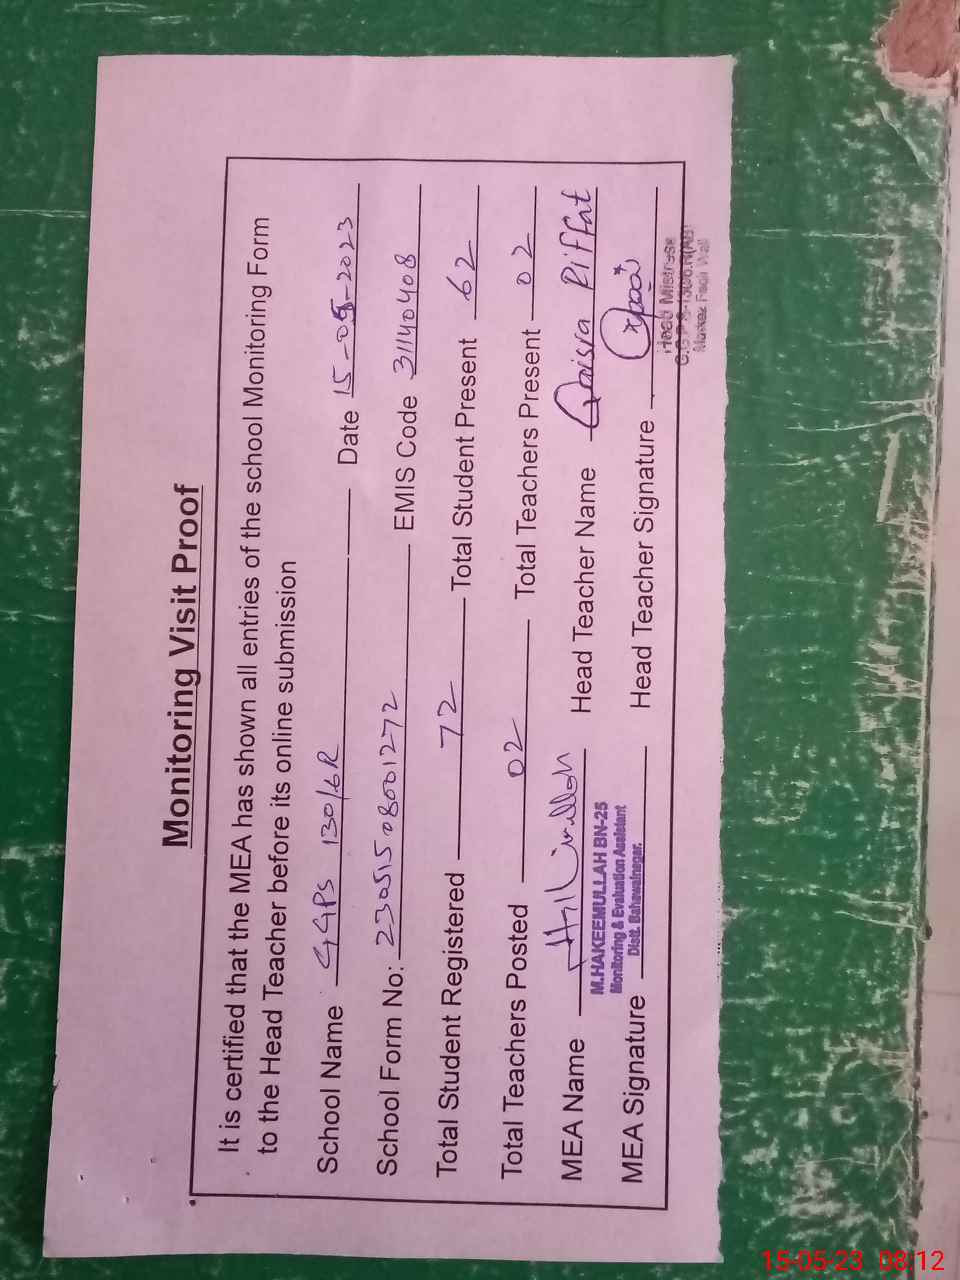 Monitoring Visit Proof
It is certified that the MEA has shown all entries of the school Monitoring Form
to the Head Teacher before its online submission
School Name GGPS 130/6R Date 15-05-2023
School Form No: 230515080001272 EMIS Code 31140408
Total Student Registered 72 Total Student Present 62
Total Teachers Posted 02 Total Teachers Present 02
MEA Name Head Teacher Name Qaisra Riffat
M.HAKEEMULLAH BN-25
Monitoring & Evaluation Assistant
Distt. Bahawalnagar.
MEA Signature Head Teacher Signature
Head Mistress
Markaz Faqir Wali
15-05-23 08:12